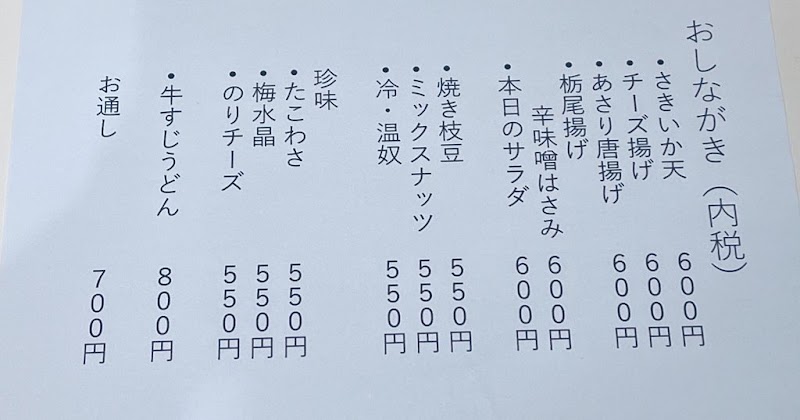 おしながき（内税）
・さきいか天 600円
・チーズ揚げ 600円
・あさり唐揚げ 600円
・栃尾揚げ
辛味噌はさみ 600円
・本日のサラダ 600円
・焼き枝豆 550円
・ミックスナッツ 550円
・冷・温奴 550円
珍味
・たこわさ 550円
・梅水晶 550円
・のりチーズ 550円
・牛すじうどん 800円
お通し 700円